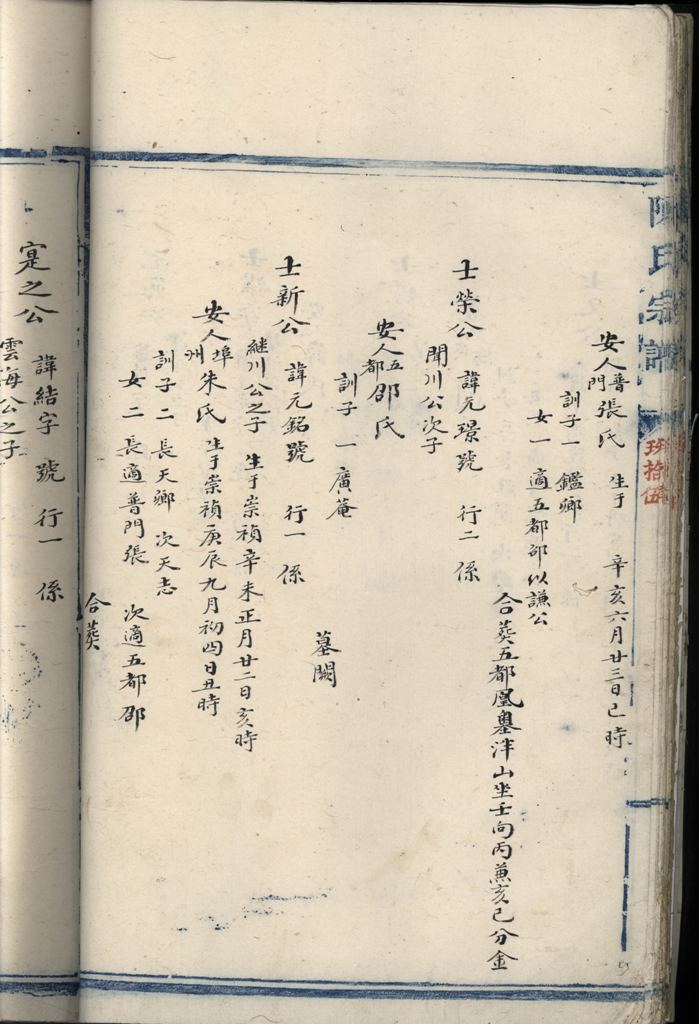 陳氏宗譜
安人普門張氏 生于 辛亥六月廿三日巳時
訓子一 鑑鄉
女一 適五都邵似謙公
合葬五都鳳墨洋山坐壬向丙兼亥巳分金
士榮公 諱元璟號 行二 係
聞川公次子
安人五都邵氏
訓子 一 廣菴
墓闕
士新公 諱元銘號 行一 係
繼川公之子 生于崇禎辛未正月廿二日亥時
安人埠州朱氏 生于崇禎庚辰九月初四日丑時
訓子二 長天鄉 次天志
女二 長適普門張 次適五都邵
合葵
寔之公 諱結字 號 行一 係
雲海公之子